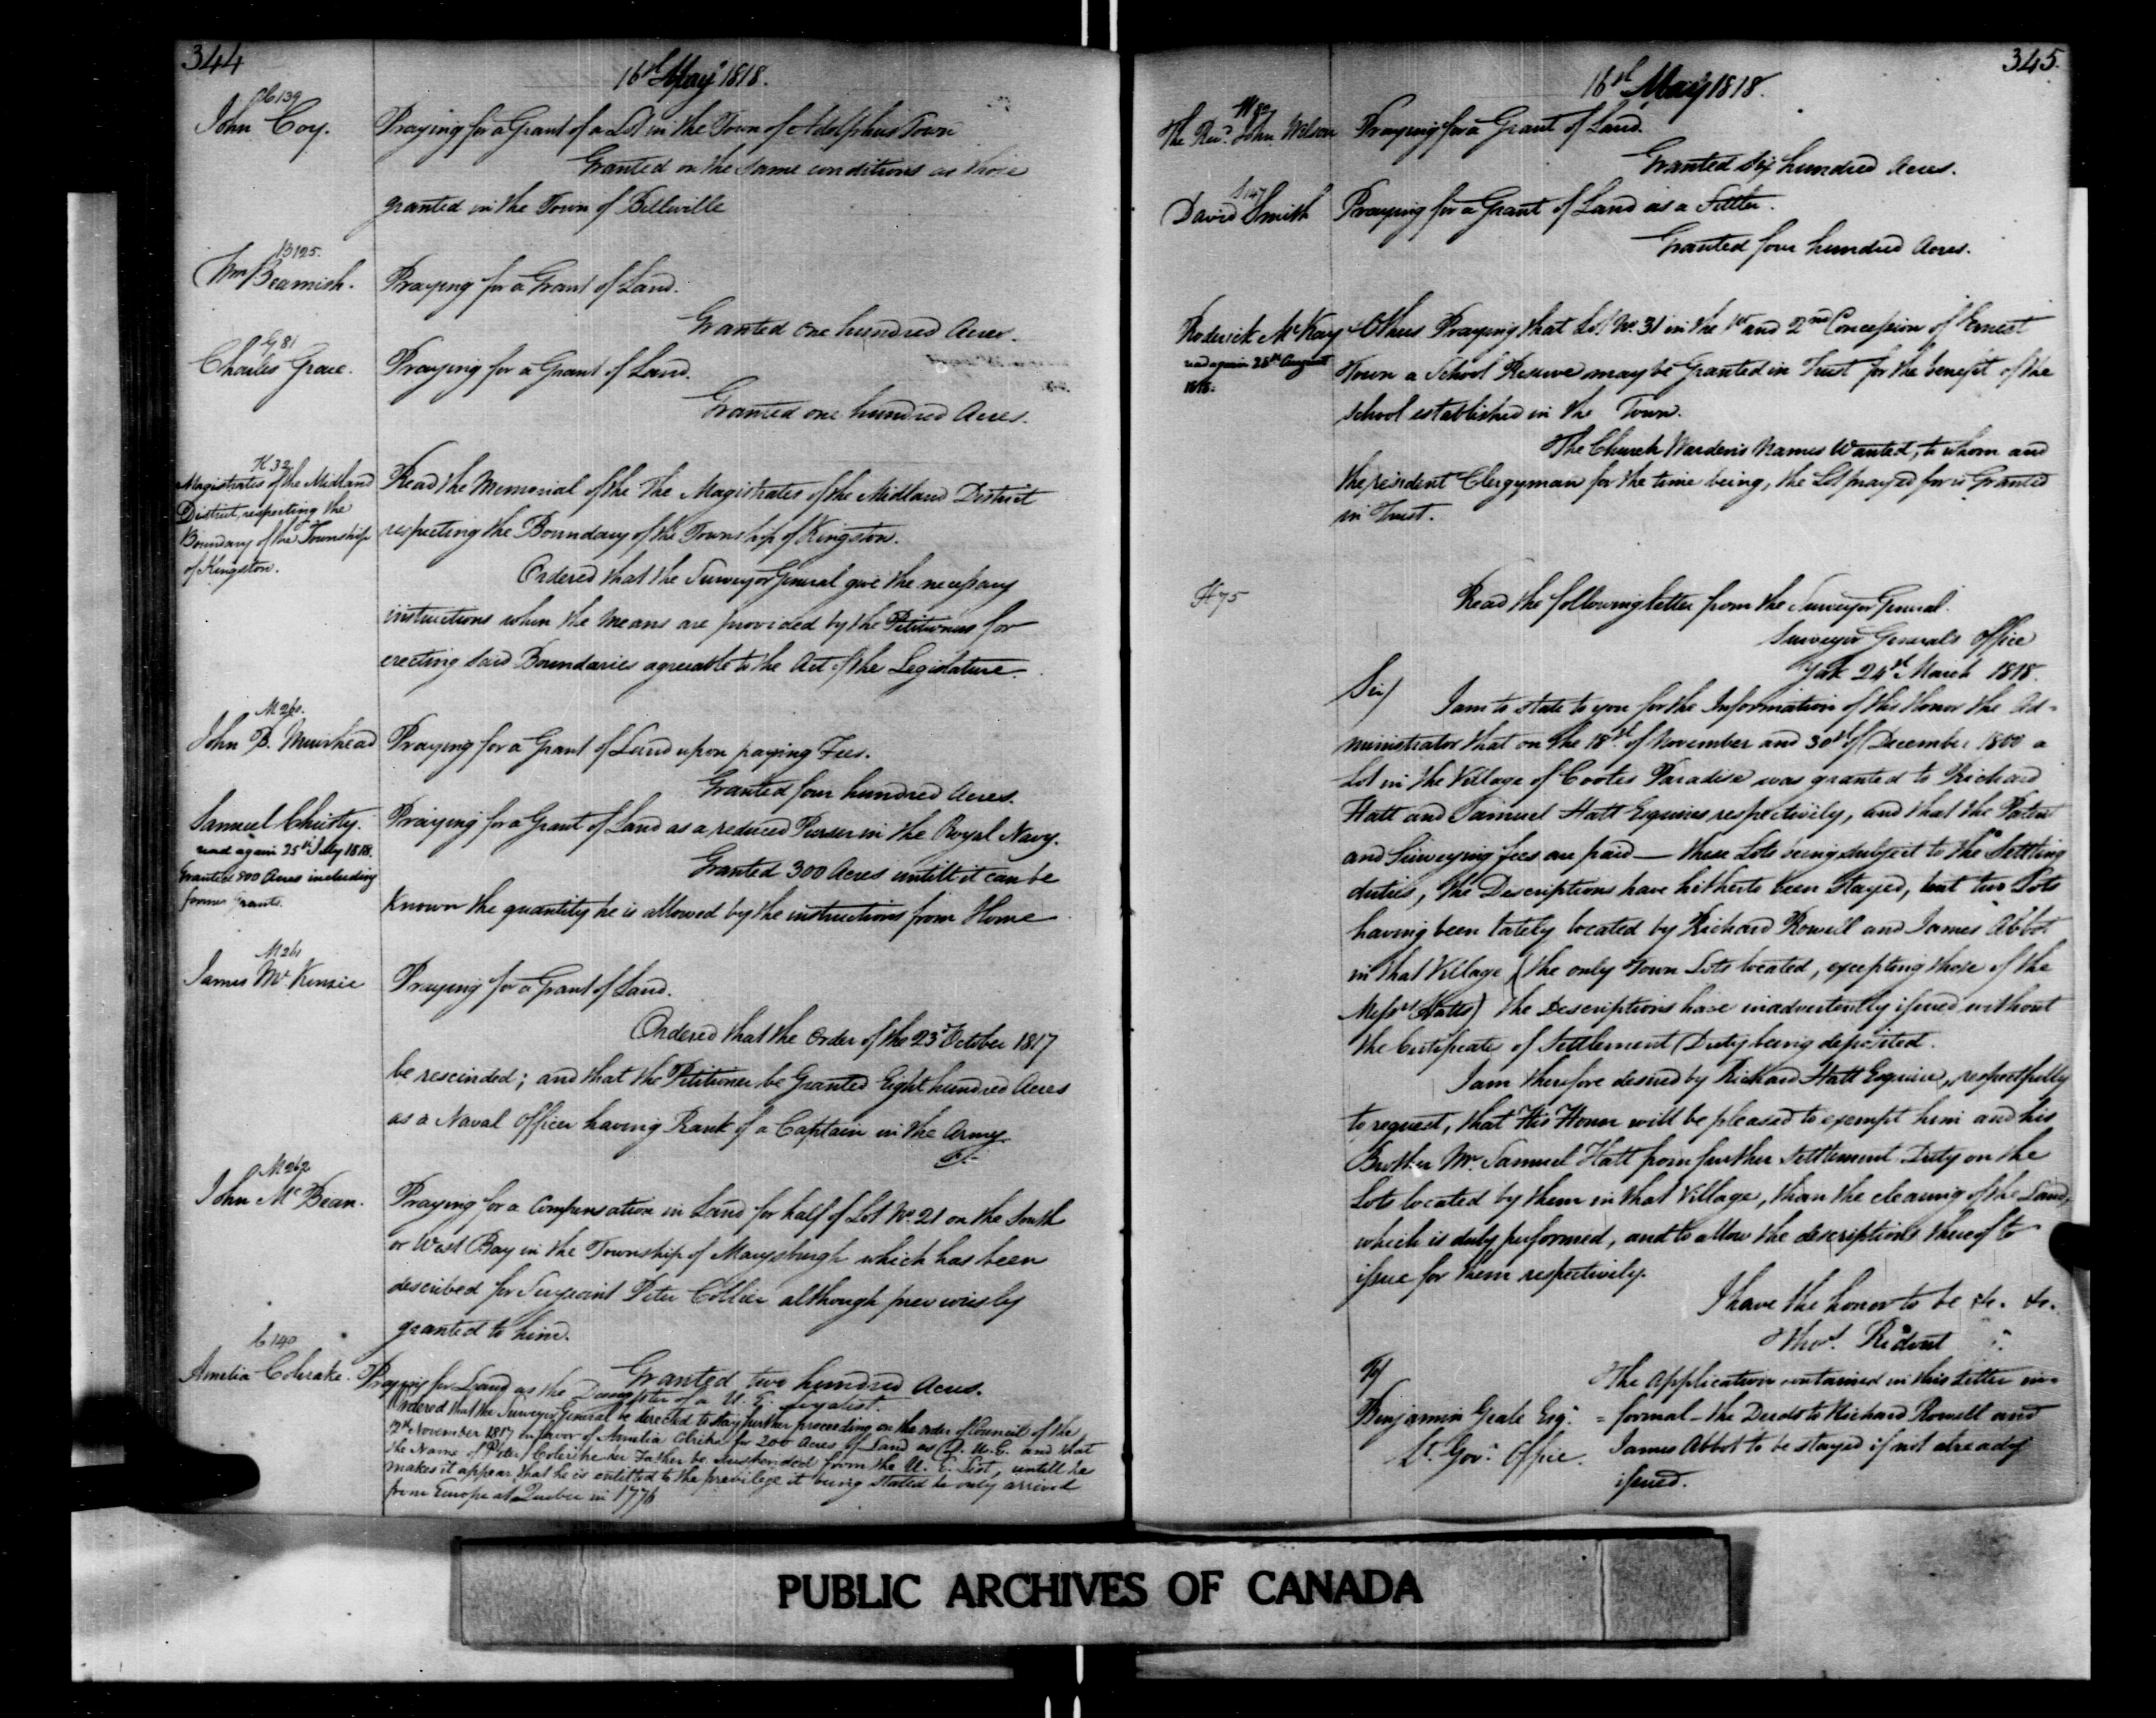 344
16th May 1818.
C 139
John Coy.
Praying for a Grant of a Lot in the Town of Adolphus Town
Granted on the same conditions as those
granted in the Town of Bellville
B 125.
Wm Beamish.
Praying for a Grant of Land.
Granted One hundred Acres.
G 81
Charles Grace.
Praying for a Grant of Land.
Granted one hundred Acres.
K 32
Magistrates of the Midland
District, respecting the
Boundary of the Township
of Kingston.
Read the Memorial of the The Magistrates of the Midland District
respecting the Boundary of the Township of Kingston.
Ordered that the Surveyor General give the necessary
instructions when the means are provided by the Petitioners for
erecting said Boundaries agreeable to the Act of the Legislature.
M 260.
John B. Muirhead
Praying for a Grant of Land upon paying Fees.
Granted four hundred Acres.
Samuel Christy.
read again 25th July 1818.
Granted 800 Acres including
former grants.
Praying for a Grant of Land as a reduced Purser in the Royal Navy.
Granted 300 Acres untill it can be
known the quantity he is allowed by the instructions from Home
M 261
James McKenzie
Praying for a Grant of Land.
Ordered that the Order of the 23d October 1817
be rescinded; and that the Petitioner be Granted Eight hundred Acres
as a Naval Officer having Rank of a Captain in the Army
M 262
John McBean.
Praying for a Compensation in Land for half of Lot No. 21 on the South
or West Bay in the Township of Marysburgh which has been
described for Serjeant Peter Collier although previously
granted to him.
Granted two hundred Acres.
C 140
Amelia Colerake.
Praying for Land as the Daughter of a U. E. Loyalist.
Ordered that the Surveyor General be directed to stay further proceeding on the order of Council of the
12th November 1817 in favor of Amelia Colrike for 200 Acres of Land as D. U. E. and that
the Name of Peter Colerike her Father be suspended from the U. E. List, untill he
makes it appear that he is entitled to the privilege it being stated he only arrived
from Europe at Quebec in 1776
345.
16th May 1818.
W 82
The Revd. John Wilson
Praying for a Grant of Land.
Granted Six hundred Acres.
S 147
David Smith
Praying for a Grant of Land as a Settler.
Granted four hundred Acres.
Roderick McKay & Others
read again 28th August
1818.
Praying that Lot No. 31 in the 1st and 2nd Concession of Ernest
Town a School Reserve may be Granted in Trust for the benefit of the
School established in the Town.
The Church Warden's Names Wanted, to whom and
the resident Clergyman for the time being, the Lot prayed for is Granted
in Trust.
H 75
Read the following letter from the Surveyor General.
Surveyor Generals Office
York 24th March 1818.
Sir/
I am to state to you for the Information of His Honor the Ad-
ministrator that on the 18th of November and 30th of December 1800 a
Lot in the Village of Cootes Paradise was granted to Richard
Hatt and Samuel Hatt Esquires respectively, and that the Patent
and Surveying fees are paid — these Lots being subject to the Settling
duties, the Descriptions have hitherto been Stayed, but two Lots
having been lately located by Richard Rowell and James Abbot
in that Village (the only Town Lots located, excepting those of the
Messrs Hatts) the Descriptions have inadvertently issued without
the Certificate of Settlement Duty being deposited.
I am therefore desired by Richard Hatt Esquire, respectfully
to request, that His Honor will be pleased to exempt him and his
Brother Mr. Samuel Hatt from further Settlement Duty on the
Lots located by them in that Village, than the clearing of the Land,
which is duly performed, and to allow the descriptions thereof to
issue for them respectively.
I have the honor to be &c. &c.
Thos. Ridout
To/
Benjamin Geale Esqr.
Lt. Govr. Office.
The Application contained in this Letter in-
=formal — the Deeds to Richard Rowell and
James Abbot to be stayed if not already
issued.
PUBLIC ARCHIVES OF CANADA